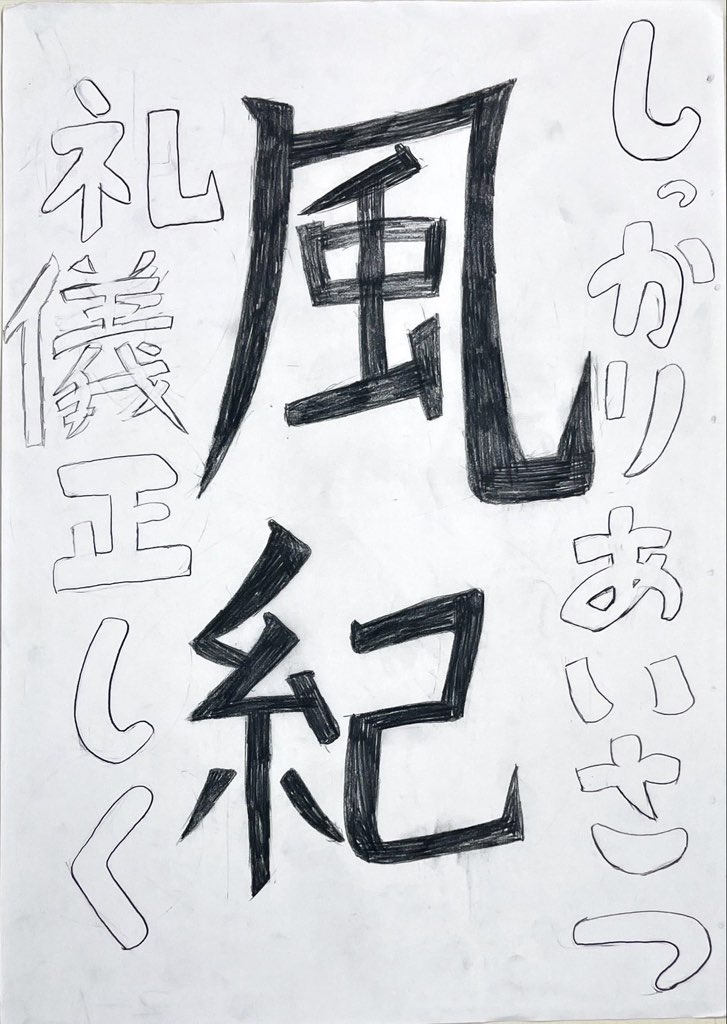 しっかりあいさつ
風紀
礼儀正しく